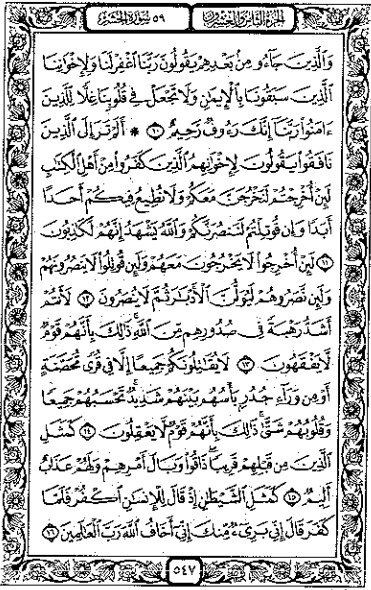 الجزء الثامن والعشرون ٥٩ سورة الحشر
وَالَّذِينَ جَآءُو مِنۢ بَعْدِهِمْ يَقُولُونَ رَبَّنَا ٱغْفِرْ لَنَا وَلِإِخْوَٰنِنَا
ٱلَّذِينَ سَبَقُونَا بِٱلْإِيمَٰنِ وَلَا تَجْعَلْ فِى قُلُوبِنَا غِلًّا لِّلَّذِينَ
ءَامَنُوا۟ رَبَّنَآ إِنَّكَ رَءُوفٌ رَّحِيمٌ ١٠ ۞ أَلَمْ تَرَ إِلَى ٱلَّذِينَ
نَافَقُوا۟ يَقُولُونَ لِإِخْوَٰنِهِمُ ٱلَّذِينَ كَفَرُوا۟ مِنْ أَهْلِ ٱلْكِتَٰبِ
لَئِنْ أُخْرِجْتُمْ لَنَخْرُجَنَّ مَعَكُمْ وَلَا نُطِيعُ فِيكُمْ أَحَدًا
أَبَدًا وَإِن قُوتِلْتُمْ لَنَنصُرَنَّكُمْ وَٱللَّهُ يَشْهَدُ إِنَّهُمْ لَكَٰذِبُونَ
١١ لَئِنْ أُخْرِجُوا۟ لَا يَخْرُجُونَ مَعَهُمْ وَلَئِن قُوتِلُوا۟ لَا يَنصُرُونَهُمْ
وَلَئِن نَّصَرُوهُمْ لَيُوَلُّنَّ ٱلْأَدْبَٰرَ ثُمَّ لَا يُنصَرُونَ ١٢ لَأَنتُمْ
أَشَدُّ رَهْبَةً فِى صُدُورِهِم مِّنَ ٱللَّهِ ۚ ذَٰلِكَ بِأَنَّهُمْ قَوْمٌ
لَّا يَفْقَهُونَ ١٣ لَا يُقَٰتِلُونَكُمْ جَمِيعًا إِلَّا فِى قُرًى مُّحَصَّنَةٍ
أَوْ مِن وَرَآءِ جُدُرٍۭ ۚ بَأْسُهُم بَيْنَهُمْ شَدِيدٌ ۚ تَحْسَبُهُمْ جَمِيعًا
وَقُلُوبُهُمْ شَتَّىٰ ۚ ذَٰلِكَ بِأَنَّهُمْ قَوْمٌ لَّا يَعْقِلُونَ ١٤ كَمَثَلِ
ٱلَّذِينَ مِن قَبْلِهِمْ قَرِيبًا ۖ ذَاقُوا۟ وَبَالَ أَمْرِهِمْ وَلَهُمْ عَذَابٌ
أَلِيمٌ ١٥ كَمَثَلِ ٱلشَّيْطَٰنِ إِذْ قَالَ لِلْإِنسَٰنِ ٱكْفُرْ فَلَمَّا
كَفَرَ قَالَ إِنِّى بَرِىٓءٌ مِّنكَ إِنِّىٓ أَخَافُ ٱللَّهَ رَبَّ ٱلْعَٰلَمِينَ ١٦
٥٤٧